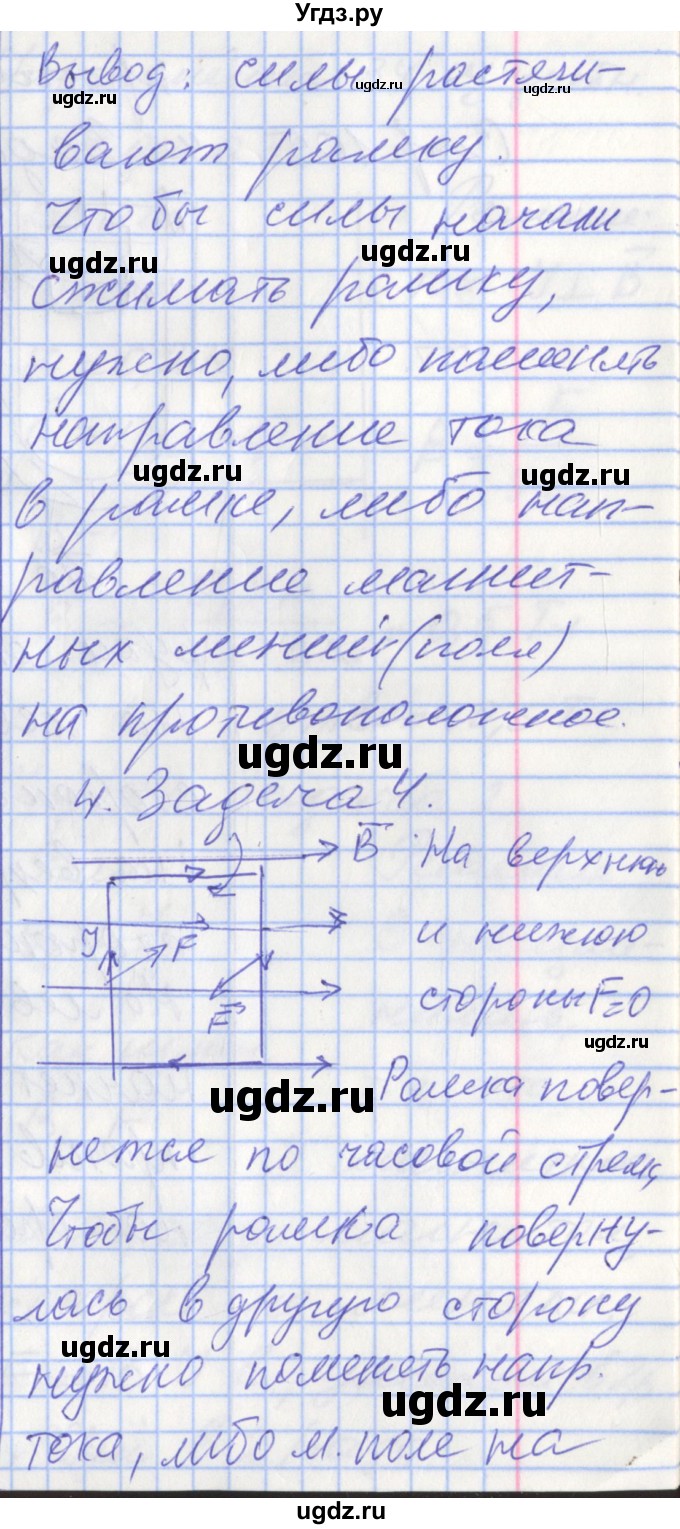 Угдз.ру
Вывод: силы растяги-
ugdz.ru ugdz.ru ugdz.ru
вают рамку.
Чтобы силы начали
ugdz.ru ugdz.ru
сжимать рамку,
нужно, либо поменять
направление тока
ugdz.ru ugdz.ru
в рамке, либо нап-
равление магнит-
ных линий (поля)
на противоположное.
ugdz.ru
4. Задача 4.
B На верхнюю
и нижюю
I F
стороны F=0
F
ugdz.ru
ugdz.ru
Рамка повер-
нется по часовой стрелк,
Чтобы рамка поверну-
лась в другую сторону
ugdz.ru
нужно поменять напр.
ugdz.ru
тока, либо м. поле на
ugdz.ru